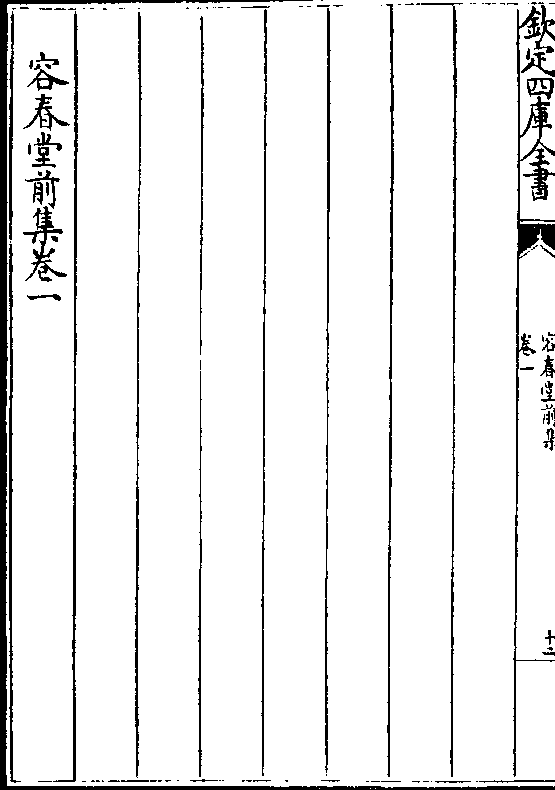 欽定四庫全書
容春堂前集
卷一
十二
容春堂前集卷一